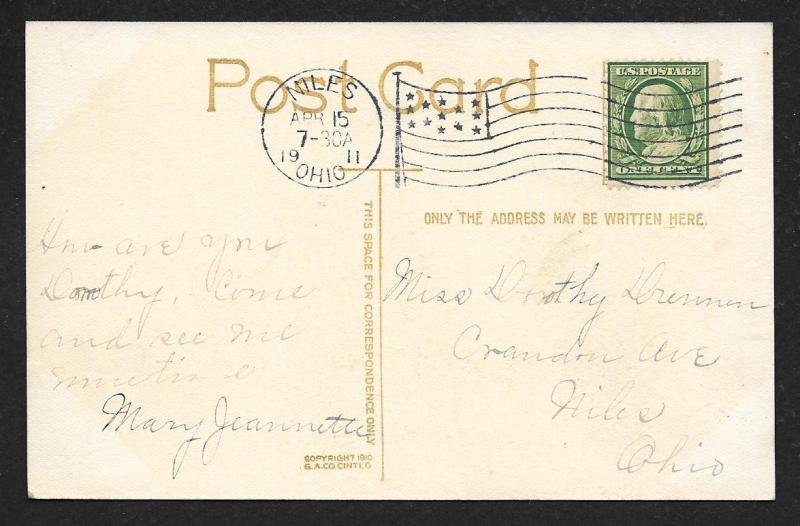 Post Card
NILES
APR 15
7-30A
19 11
OHIO
U.S. POSTAGE
ONE CENT
THIS SPACE FOR CORRESPONDENCE ONLY
ONLY THE ADDRESS MAY BE WRITTEN HERE.
How are you
Dorothy. Come
and see me
sometime
Mary Jeannette
Miss Dorothy Drennen
Crandon Ave
Niles
Ohio
COPYRIGHT 1910
G.A.CO. CINTI, O